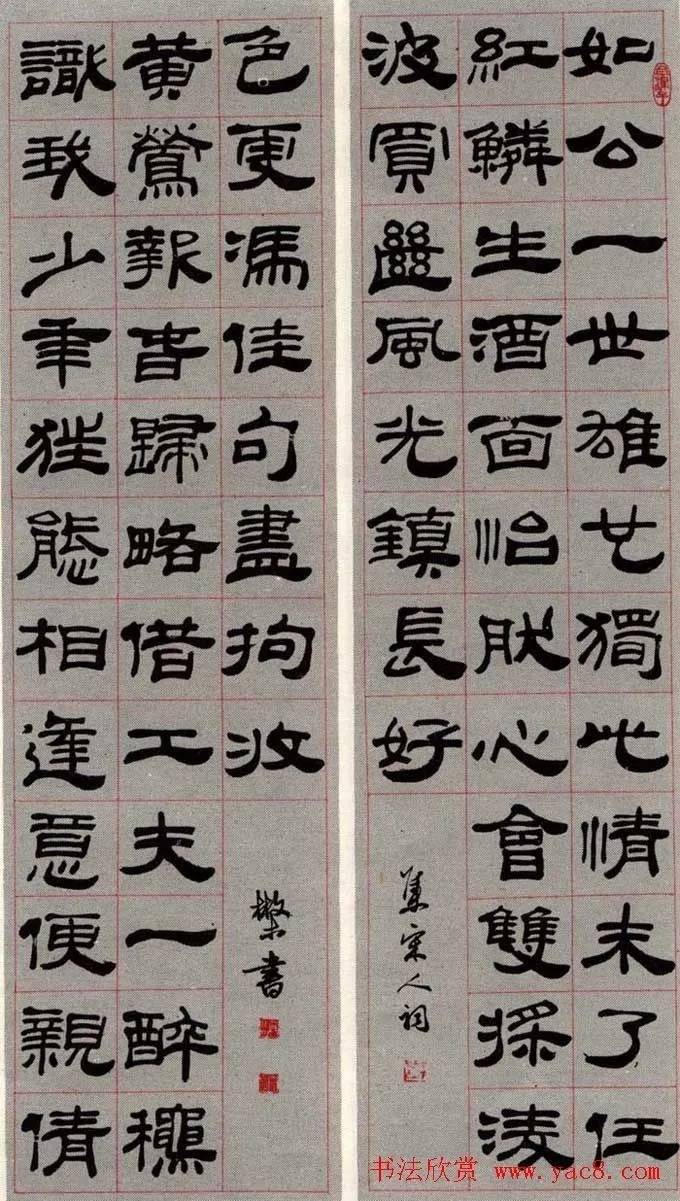 如公一世雄獨此情未了任
紅鱗生酒面怡然心會雙採淩
波買斷風光鎮長好
集宋人詞
識我少年狂態相逢意便親倩
黃鶯報春歸略借工夫一醉穠
色更馮佳句盡拘收
書
书法欣赏 www.yac8.com